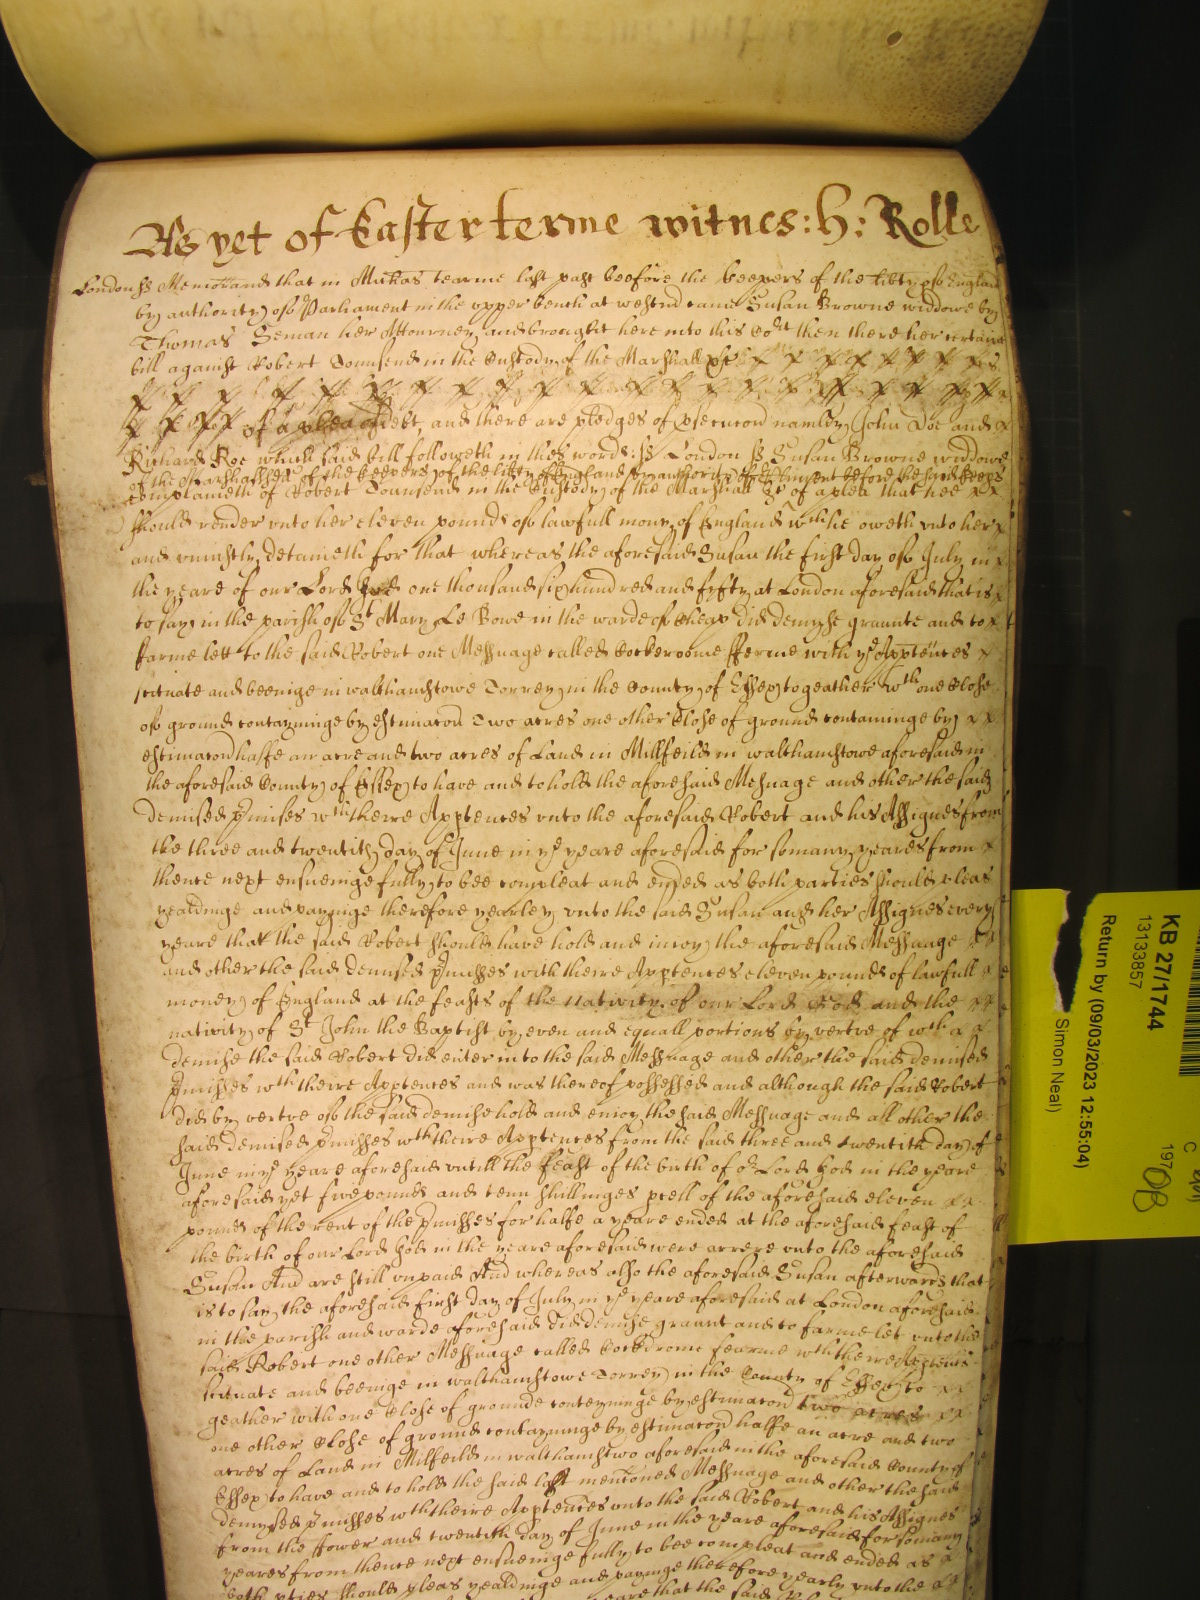 As yet of Easter terme witnes: H: Rolle
London ss Memorand that in Michas tearme last past beefore the keepers of the libty of England
by authority of Parliament in the vpper bench at westmr came Susan Browne widdowe by
Thomas Seman her Attourney and brought here into this Cort then there her certaine
bill against Robert Townsend in the Custody of the Marshall &c
of a plea of debt, and there are pledges of psecucon namley John Doe and
Richard Roe which said bill followeth in thes words: ss London ss Susan Browne widdowe
of the Marshallsea of the keepers of the libty of England by authority of Parliament before the said keeps
complaineth of Robert Townsend in the Custody of the Marshall &c of a plea that hee
should render vnto her eleven pounds of lawfull mony of England wch he oweth vnto her
and vniustly detaineth for that whereas the aforesaid Susan the first day of July in
the yeare of our Lord God one thousand six hundred and fyfty at London aforesaid that is
to say in the parish of St Mary Le Bowe in the warde of Cheap did demyse graunte and to
farme lett to the said Robert one Messuage called Cockeroome fferme with ye Apptences
scituate and beeinge in walthamstowe Torrey in the County of Essex togeather wth one Close
of ground contayninge by estimacon Two acres one other Close of ground containinge by
estimacon halfe an acre and two acres of Land in Millfeild in walthamstowe aforesaid in
the aforesaid County of Essex to have and to hold the aforesaid Messuage and other the said
demised pmises wth theire Apptences vnto the aforesaid Robert and his Assignes from
the three and twentith day of June in ye yeare aforesaid for somany yeares from
thence next ensueinge fully to bee compleat and ended as both parties should pleas
yealdinge and payinge therefore yearley vnto the said Susan and her Assignes every
yeare that the said Robert should have hold and inioy the aforesaid Messuage
and other the said demised pmisses with theire Apptences eleven pounds of lawfull
money of England at the feasts of the nativity of our Lord God and the
nativity of St John the Baptist by even and equall portions by vertve of wch
demise the said Robert did enter into the said Messuage and other the said demised
pmisses wth theire Apptences and was thereof possessed and although the said Robert
did by vertve of the said demise hold and enioy the said Messuage and all other the
said demised pmisses wth theire Apptences from the said three and twentith day of
June in ye yeare aforesaid vntill the feast of the birth of or Lord God in the yeare
aforesaid yet five pounds and tenn shillinges pcell of the aforesaid eleven
pounds of the rent of the pmisses for halfe a yeare ended at the aforesaid feast of
the birth of our Lord God in the yeare aforesaid were arrere vnto the aforesaid
Susan And are still vnpaid And whereas also the aforesaid Susan afterwards that
is to say the aforesaid first day of July in ye yeare aforesaid at London aforesaid
in the parish and warde aforesaid did demise graunt and to farme let vnto the
said Robert one other Messuage called Cockrome fearme wth theire Apptents
scituate and beeinge in walthamstowe Torrey in the County of Essex to
geather with one Close of grounde conteyninge by estimacon two acres
one other Close of ground contayninge by estimacon halfe an acre and two
acres of Land in Milfeild in walthamstwo aforesaid in the aforesaid County of
Essex to have and to hold the said last mentoned Messuage and other the said
demysed pmisses wth theire Apptences vnto the said Robert and his Assignes
from the fower and twentith day of June in the yeare aforesaid for somany
yeares from thence next ensueinge fully to bee compleat and ended as
both pties should pleas yealdinge and payinge therefore yearly vnto the
yeare that the said
KB 27/1744
13133857
Return by (09/03/2023 12:55:04)
Simon Neal)